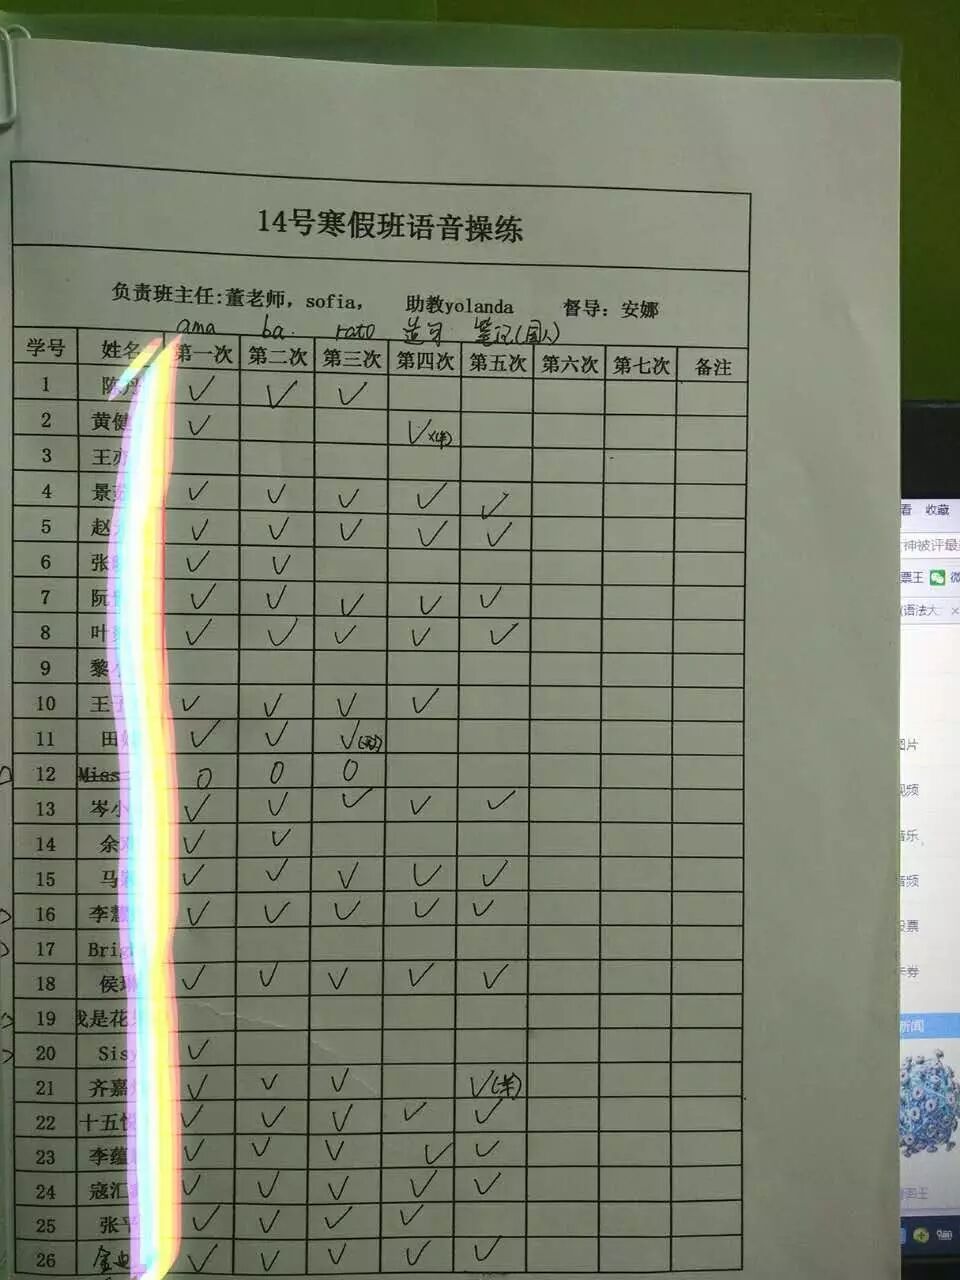 14号寒假班语音操练
负责班主任:董老师, sofia, 助教yolanda 督导: 安娜
ama ba rato 造句 笔记(国人)
学号 姓名 第一次 第二次 第三次 第四次 第五次 第六次 第七次 备注
1 陈丹 ✓ ✓ ✓
2 黄健 ✓ ✓
3 王亦
4 景 ✓ ✓ ✓ ✓ ✓
5 赵 ✓ ✓ ✓ ✓ ✓
6 张 ✓ ✓
7 阮 ✓ ✓ ✓ ✓ ✓
8 叶 ✓ ✓ ✓ ✓ ✓
9 黎小
10 王子 ✓ ✓ ✓ ✓
11 田 ✓ ✓ ✓
12 Miss 0 0 0
13 岑小 ✓ ✓ ✓ ✓ ✓
14 余 ✓ ✓
15 马 ✓ ✓ ✓ ✓ ✓
16 李慧 ✓ ✓ ✓ ✓ ✓
17 Brig
18 侯 ✓ ✓ ✓ ✓ ✓
19 我是花
20 Sisy ✓
21 齐嘉 ✓ ✓ ✓ ✓(半)
22 十五 ✓ ✓ ✓ ✓ ✓
23 李蕴 ✓ ✓ ✓ ✓ ✓
24 寇汇 ✓ ✓ ✓ ✓ ✓
25 张平 ✓ ✓ ✓ ✓
26 金 ✓ ✓ ✓ ✓ ✓
看 收藏
神被评最
票王 微
语法大
图片
视频
音乐
音频
投票
卡券
新闻